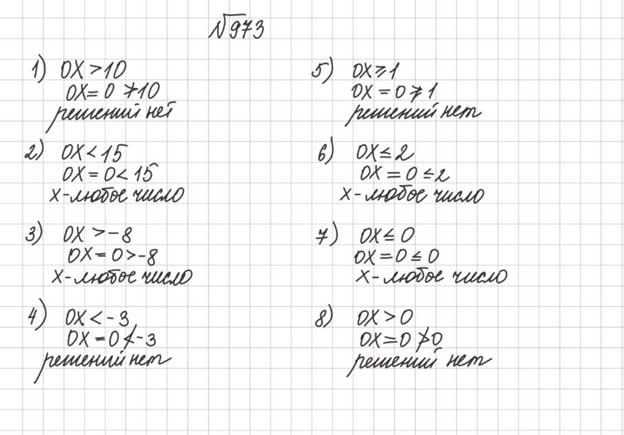 №973
1) 0x > 10
0x = 0 ≯ 10
решений нет
2) 0x < 15
0x = 0 < 15
x - любое число
3) 0x > -8
0x = 0 > -8
x - любое число
4) 0x < -3
0x = 0 ≮ -3
решений нет
5) 0x ≥ 1
0x = 0 ≱ 1
решений нет
6) 0x ≤ 2
0x = 0 ≤ 2
x - любое число
7) 0x ≤ 0
0x = 0 ≤ 0
x - любое число
8) 0x > 0
0x = 0 ≯ 0
решений нет